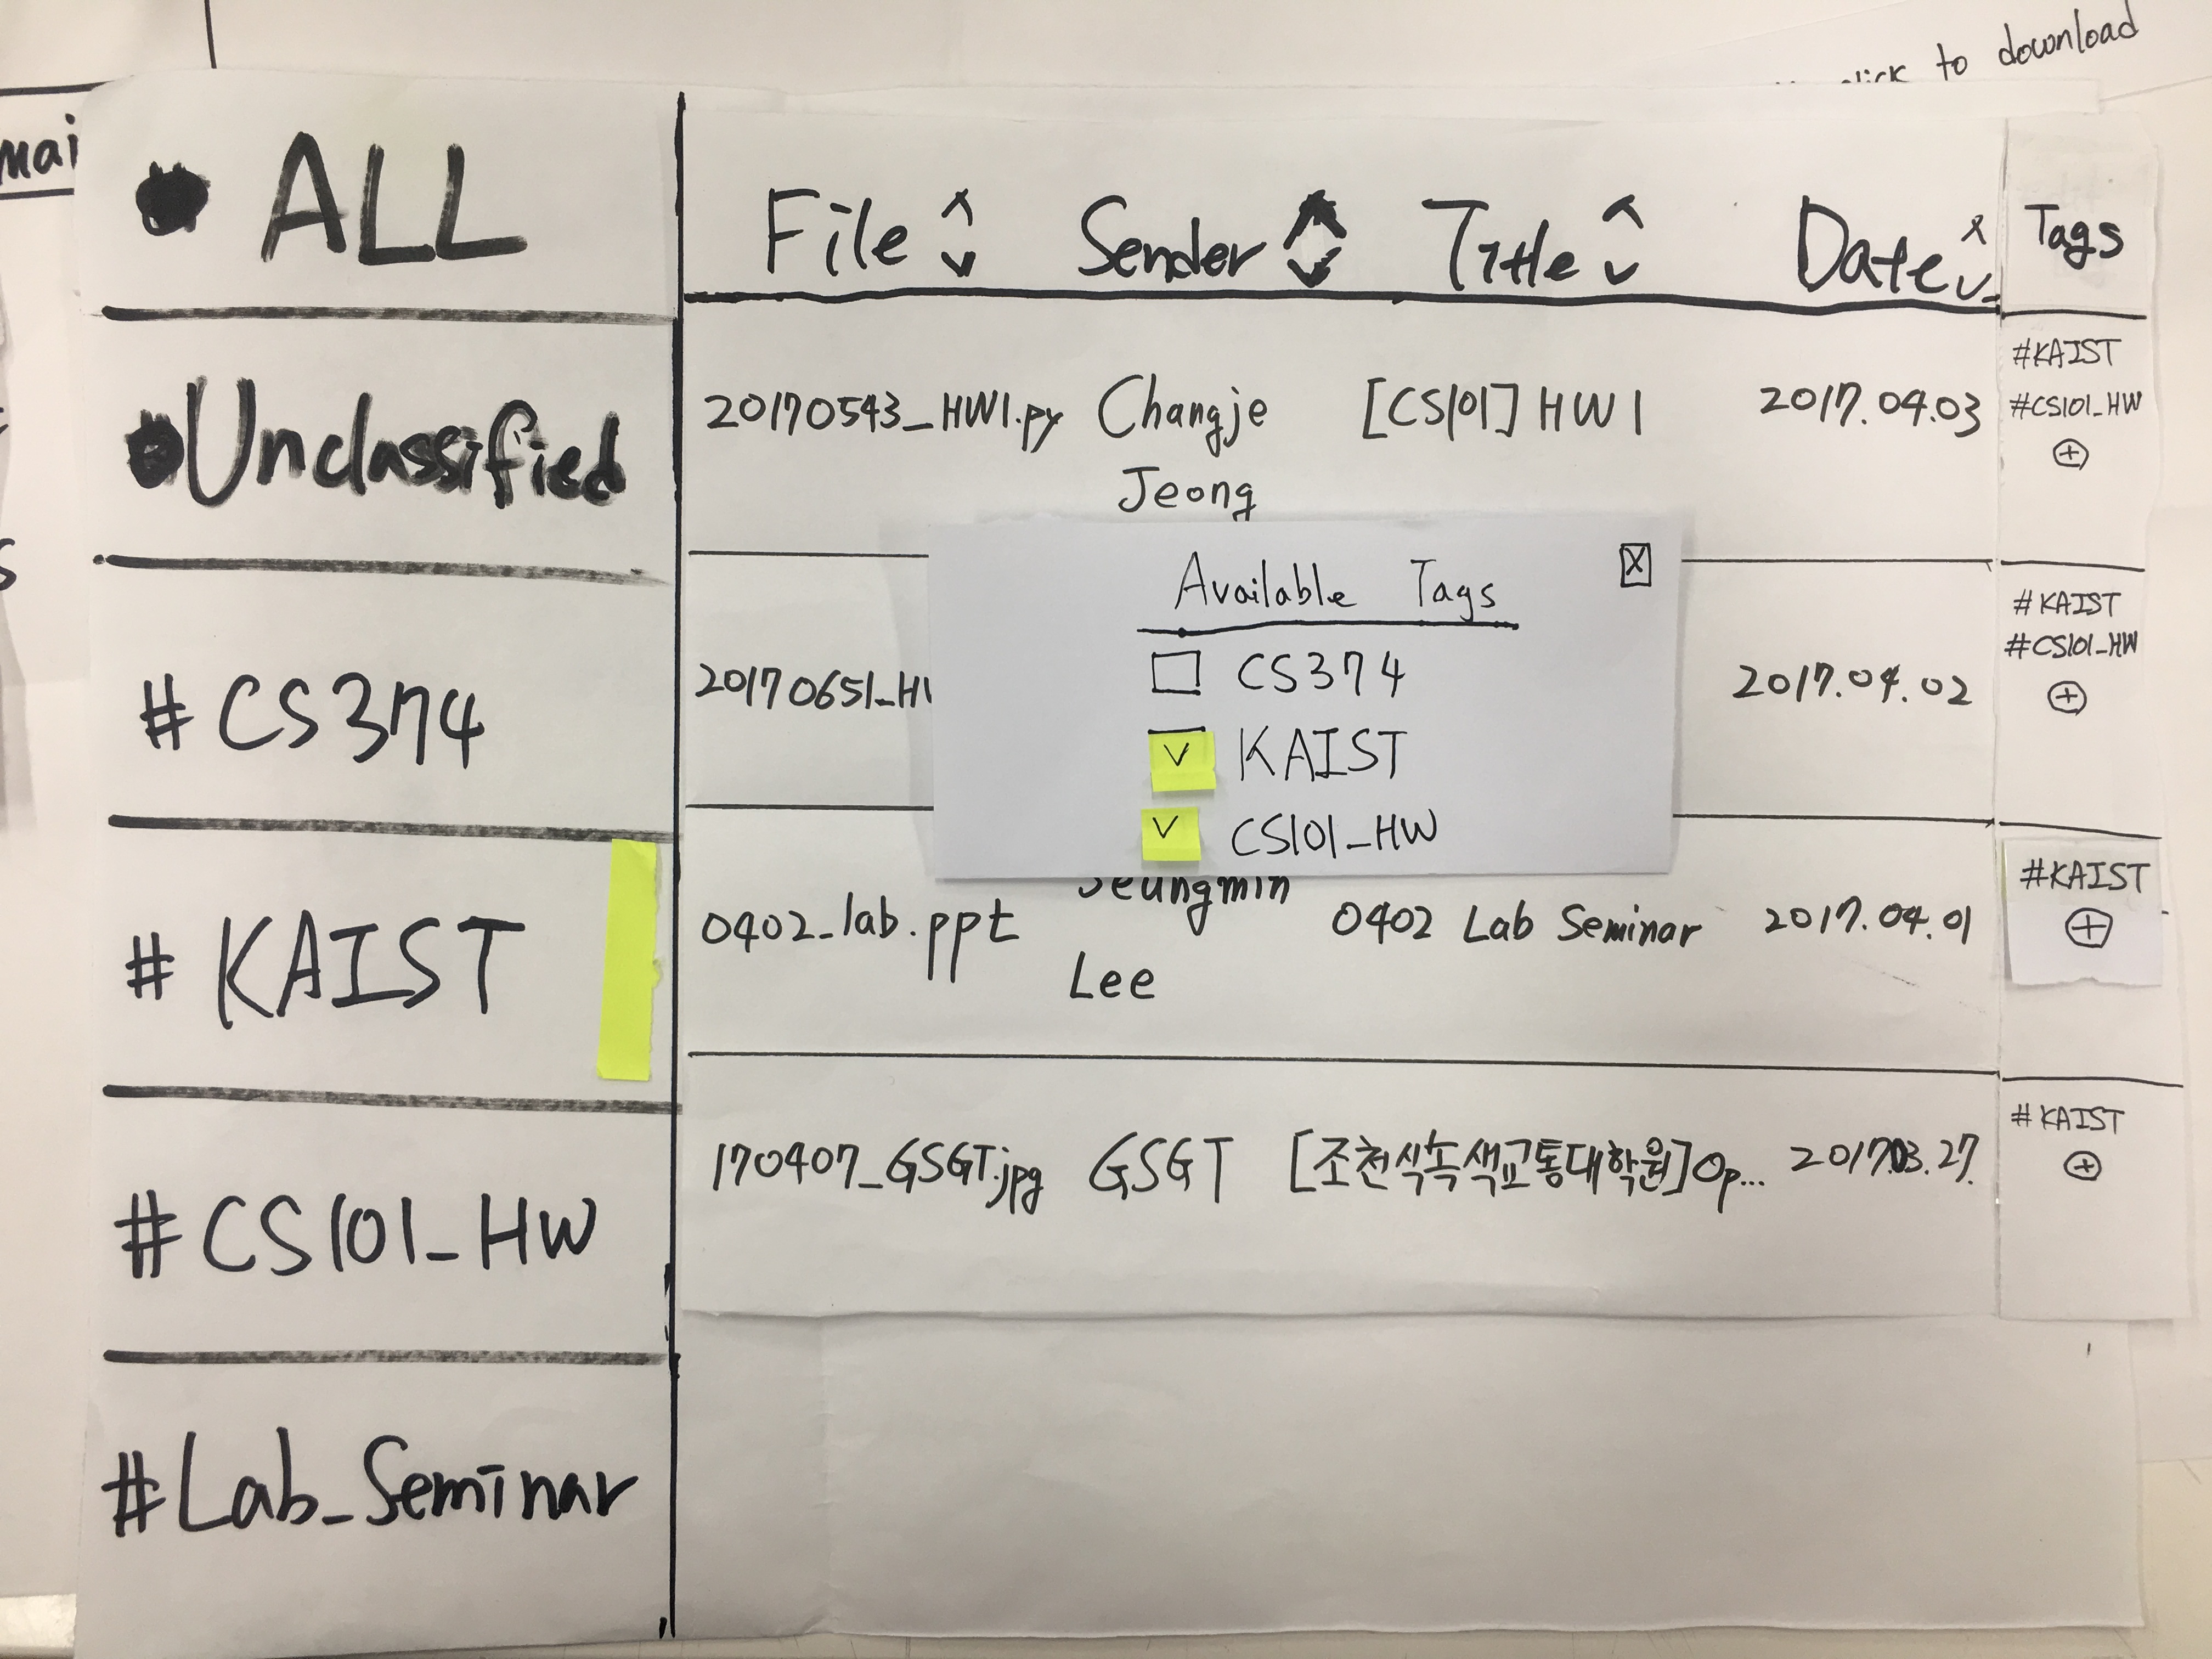 to download
mai
ALL
Unclassified
#CS374
#KAIST
#CS101_HW
#Lab_Seminar
File Sender Title Date Tags
20170543_HW1.py Changje Jeong [CS101] HW1 2017.04.03 #KAIST
#CS101_HW
20170651_H 2017.04.02 #KAIST
#CS101_HW
0402_lab.ppt Seungmin Lee 0402 Lab Seminar 2017.04.01 #KAIST
170407_GSGT.jpg GSGT [조천식녹색교통대학원]Op... 2017.03.27. #KAIST
Available Tags
X
CS374
V KAIST
V CS101_HW